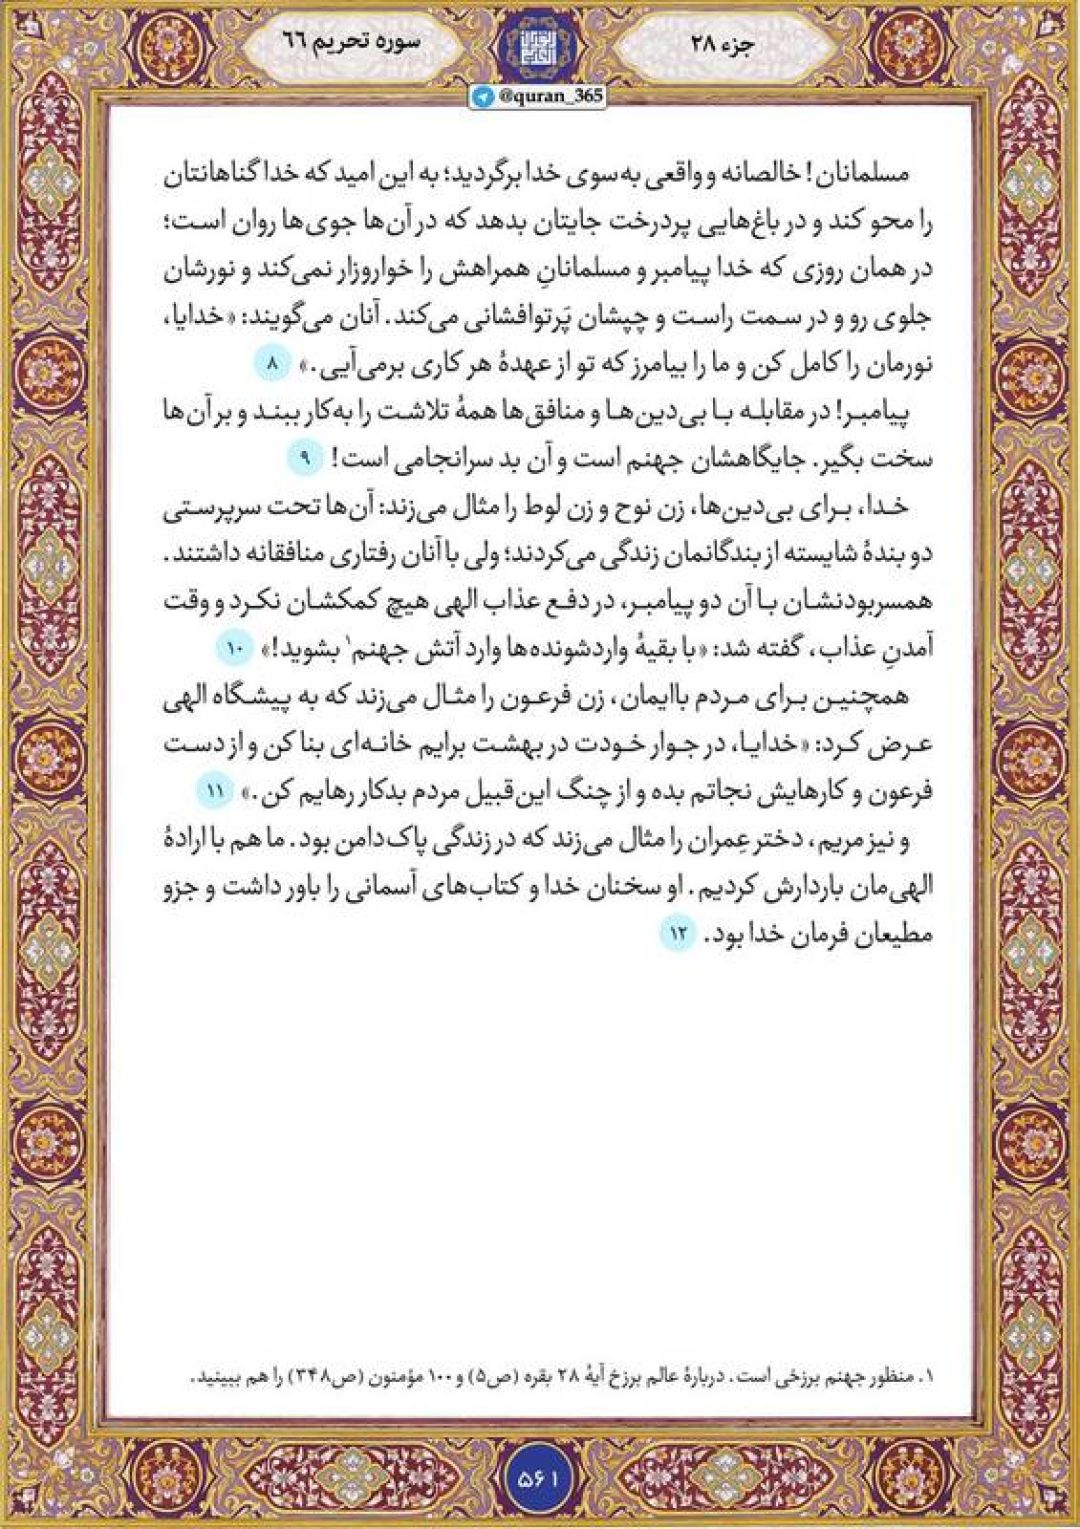 جزء ۲۸
سوره تحریم ۶۶
@quran_365
مسلمانان! خالصانه و واقعی به‌سوی خدا برگردید؛ به این امید که خدا گناهانتان
را محو کند و در باغ‌هایی پردرخت جایتان بدهد که در آن‌ها جوی‌ها روان است؛
در همان روزی که خدا پیامبر و مسلمانانِ همراهش را خواروزار نمی‌کند و نورشان
جلوی رو و در سمت راست و چپشان پَرتوافشانی می‌کند. آنان می‌گویند: «خدایا،
نورمان را کامل کن و ما را بیامرز که تو از عهدهٔ هر کاری برمی‌آیی.» ۸
پیامبر! در مقابله با بی‌دین‌ها و منافق‌ها همهٔ تلاشت را به‌کار ببند و بر آن‌ها
سخت بگیر. جایگاهشان جهنم است و آن بد سرانجامی است! ۹
خدا، برای بی‌دین‌ها، زن نوح و زن لوط را مثال می‌زند: آن‌ها تحت سرپرستی
دو بندهٔ شایسته از بندگانمان زندگی می‌کردند؛ ولی با آنان رفتاری منافقانه داشتند.
همسربودنشان با آن دو پیامبر، در دفع عذاب الهی هیچ کمکشان نکرد و وقت
آمدنِ عذاب، گفته شد: «با بقیهٔ واردشونده‌ها وارد آتش جهنم۱ بشوید!» ۱۰
همچنین برای مردم باایمان، زن فرعون را مثال می‌زند که به پیشگاه الهی
عرض کرد: «خدایا، در جوار خودت در بهشت برایم خانه‌ای بنا کن و از دست
فرعون و کارهایش نجاتم بده و از چنگ این‌قبیل مردم بدکار رهایم کن.» ۱۱
و نیز مریم، دختر عِمران را مثال می‌زند که در زندگی پاک‌دامن بود. ما هم با ارادهٔ
الهی‌مان باردارش کردیم. او سخنان خدا و کتاب‌های آسمانی را باور داشت و جزو
مطیعان فرمان خدا بود. ۱۲
۱. منظور جهنم برزخی است. دربارهٔ عالم برزخ آیهٔ ۲۸ بقره (ص۵) و ۱۰۰ مؤمنون (ص۳۴۸) را هم ببینید.
۵۶۱